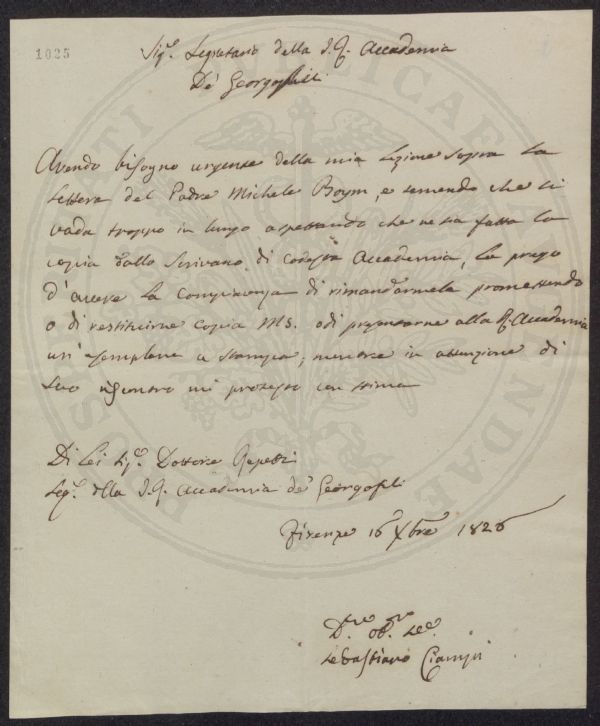 1025
Sig.e Segretario della I. R. Accademia
De' Georgofili
Avendo bisogno urgente della mia Lezione sopra la
Lettera del Padre Michele Boym, e temendo che si
vada troppo in lungo aspettando che ne sia fatta la
copia dallo Scrivano di codesta Accademia, la prego
d'avere la compiacenza di rimandarmela promettendo
o di restituirne copia MS. o di presentarne alla R. Accademia
un' esemplare a stampa; mentre in attenzione di
suo riscontro mi protesto con stima
Di Lei Sig.e Dottore Repetti
Seg.o della I. R. Accademia de' Georgofili
Firenze 16 Xbre 1826
D.mo ob.mo Se.e
Sebastiano Ciampi
PROSPERITATI PUBLICAE AUGENDAE